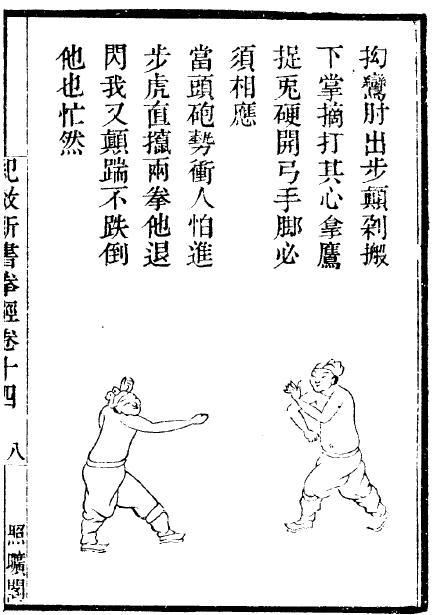 抝鸞肘出步顛剁搬
下掌摘打其心拿鷹
捉兎硬開弓手脚必
須相應
當頭砲勢衝人怕進
步虎直攛兩拳他退
閃我又顛踹不跌倒
他也忙然
紀效新書拳經卷十四
八
照曠閣